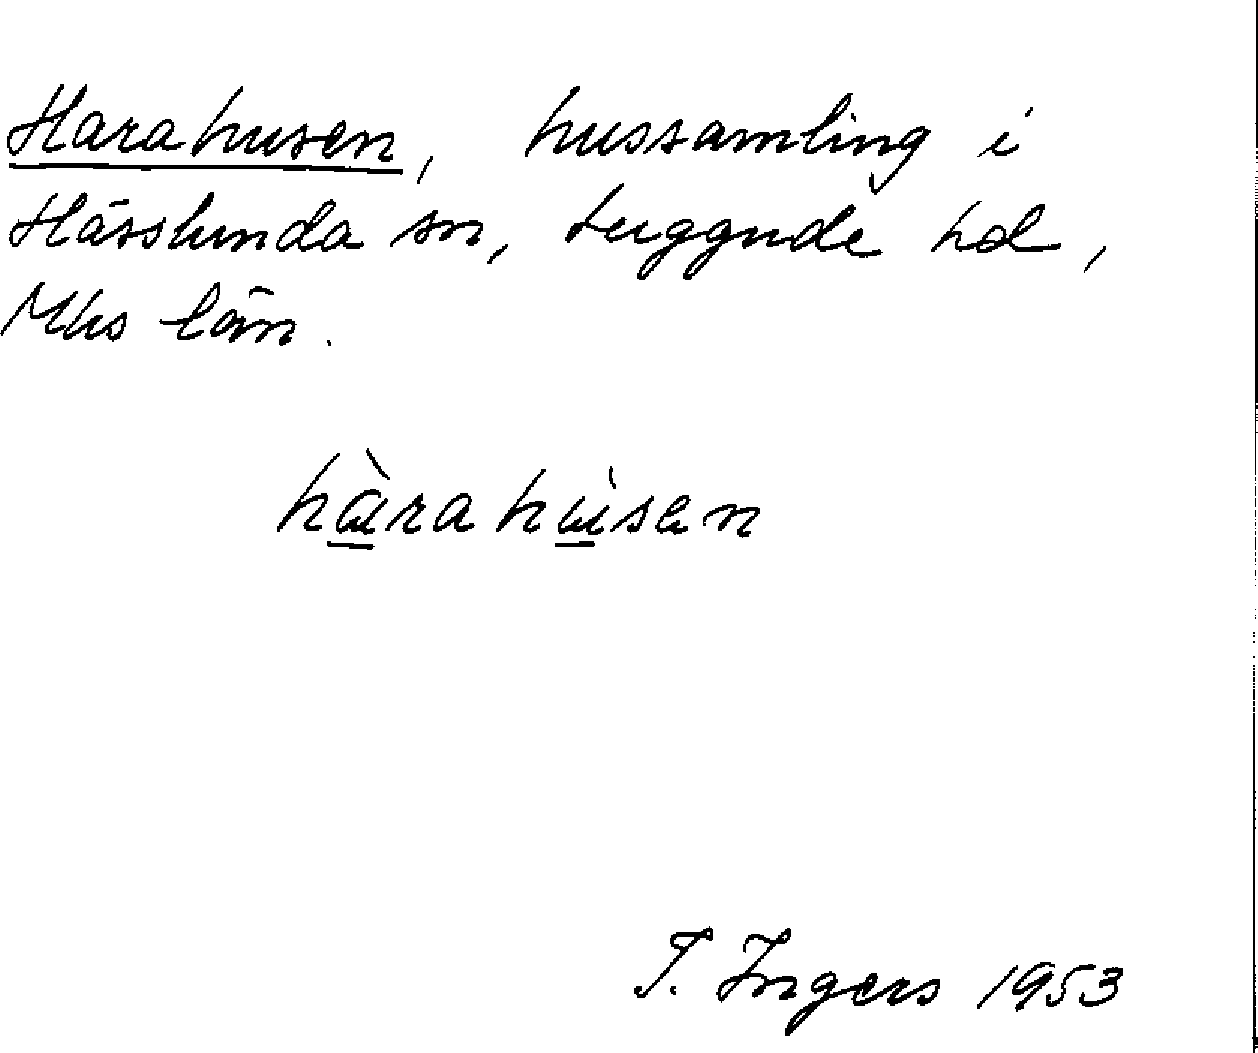 Harahusen, hussamling i
Hässlunda sn, Luggude hd,
Mhs län.
hàrahúsen
I. Ingers 1953